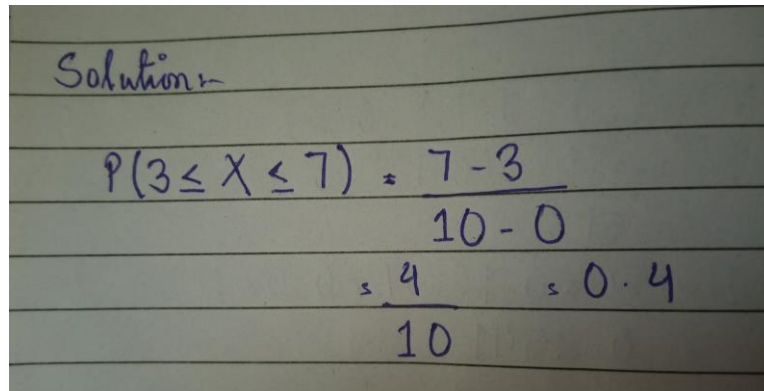 Solution:-
P(3 ≤ X ≤ 7) = 7 - 3
10 - 0
= 4 = 0.4
10